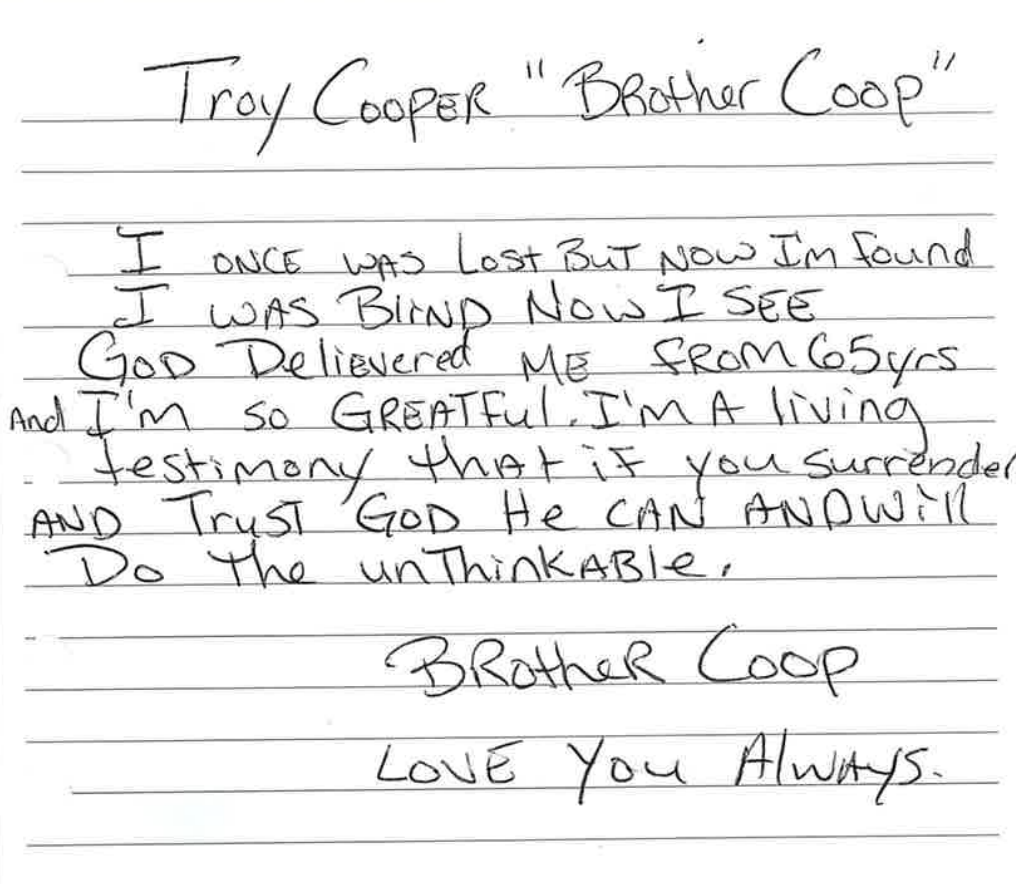 Troy Cooper "Brother Coop"
I once was Lost But Now I'm found
I was Blind Now I SEE
God Delievered ME from 65yrs
And I'm so Greatful. I'm A living
testimony that if you surrender
AND Trust God He CAN AND Will
Do the unThinkable.
Brother Coop
Love You Always.